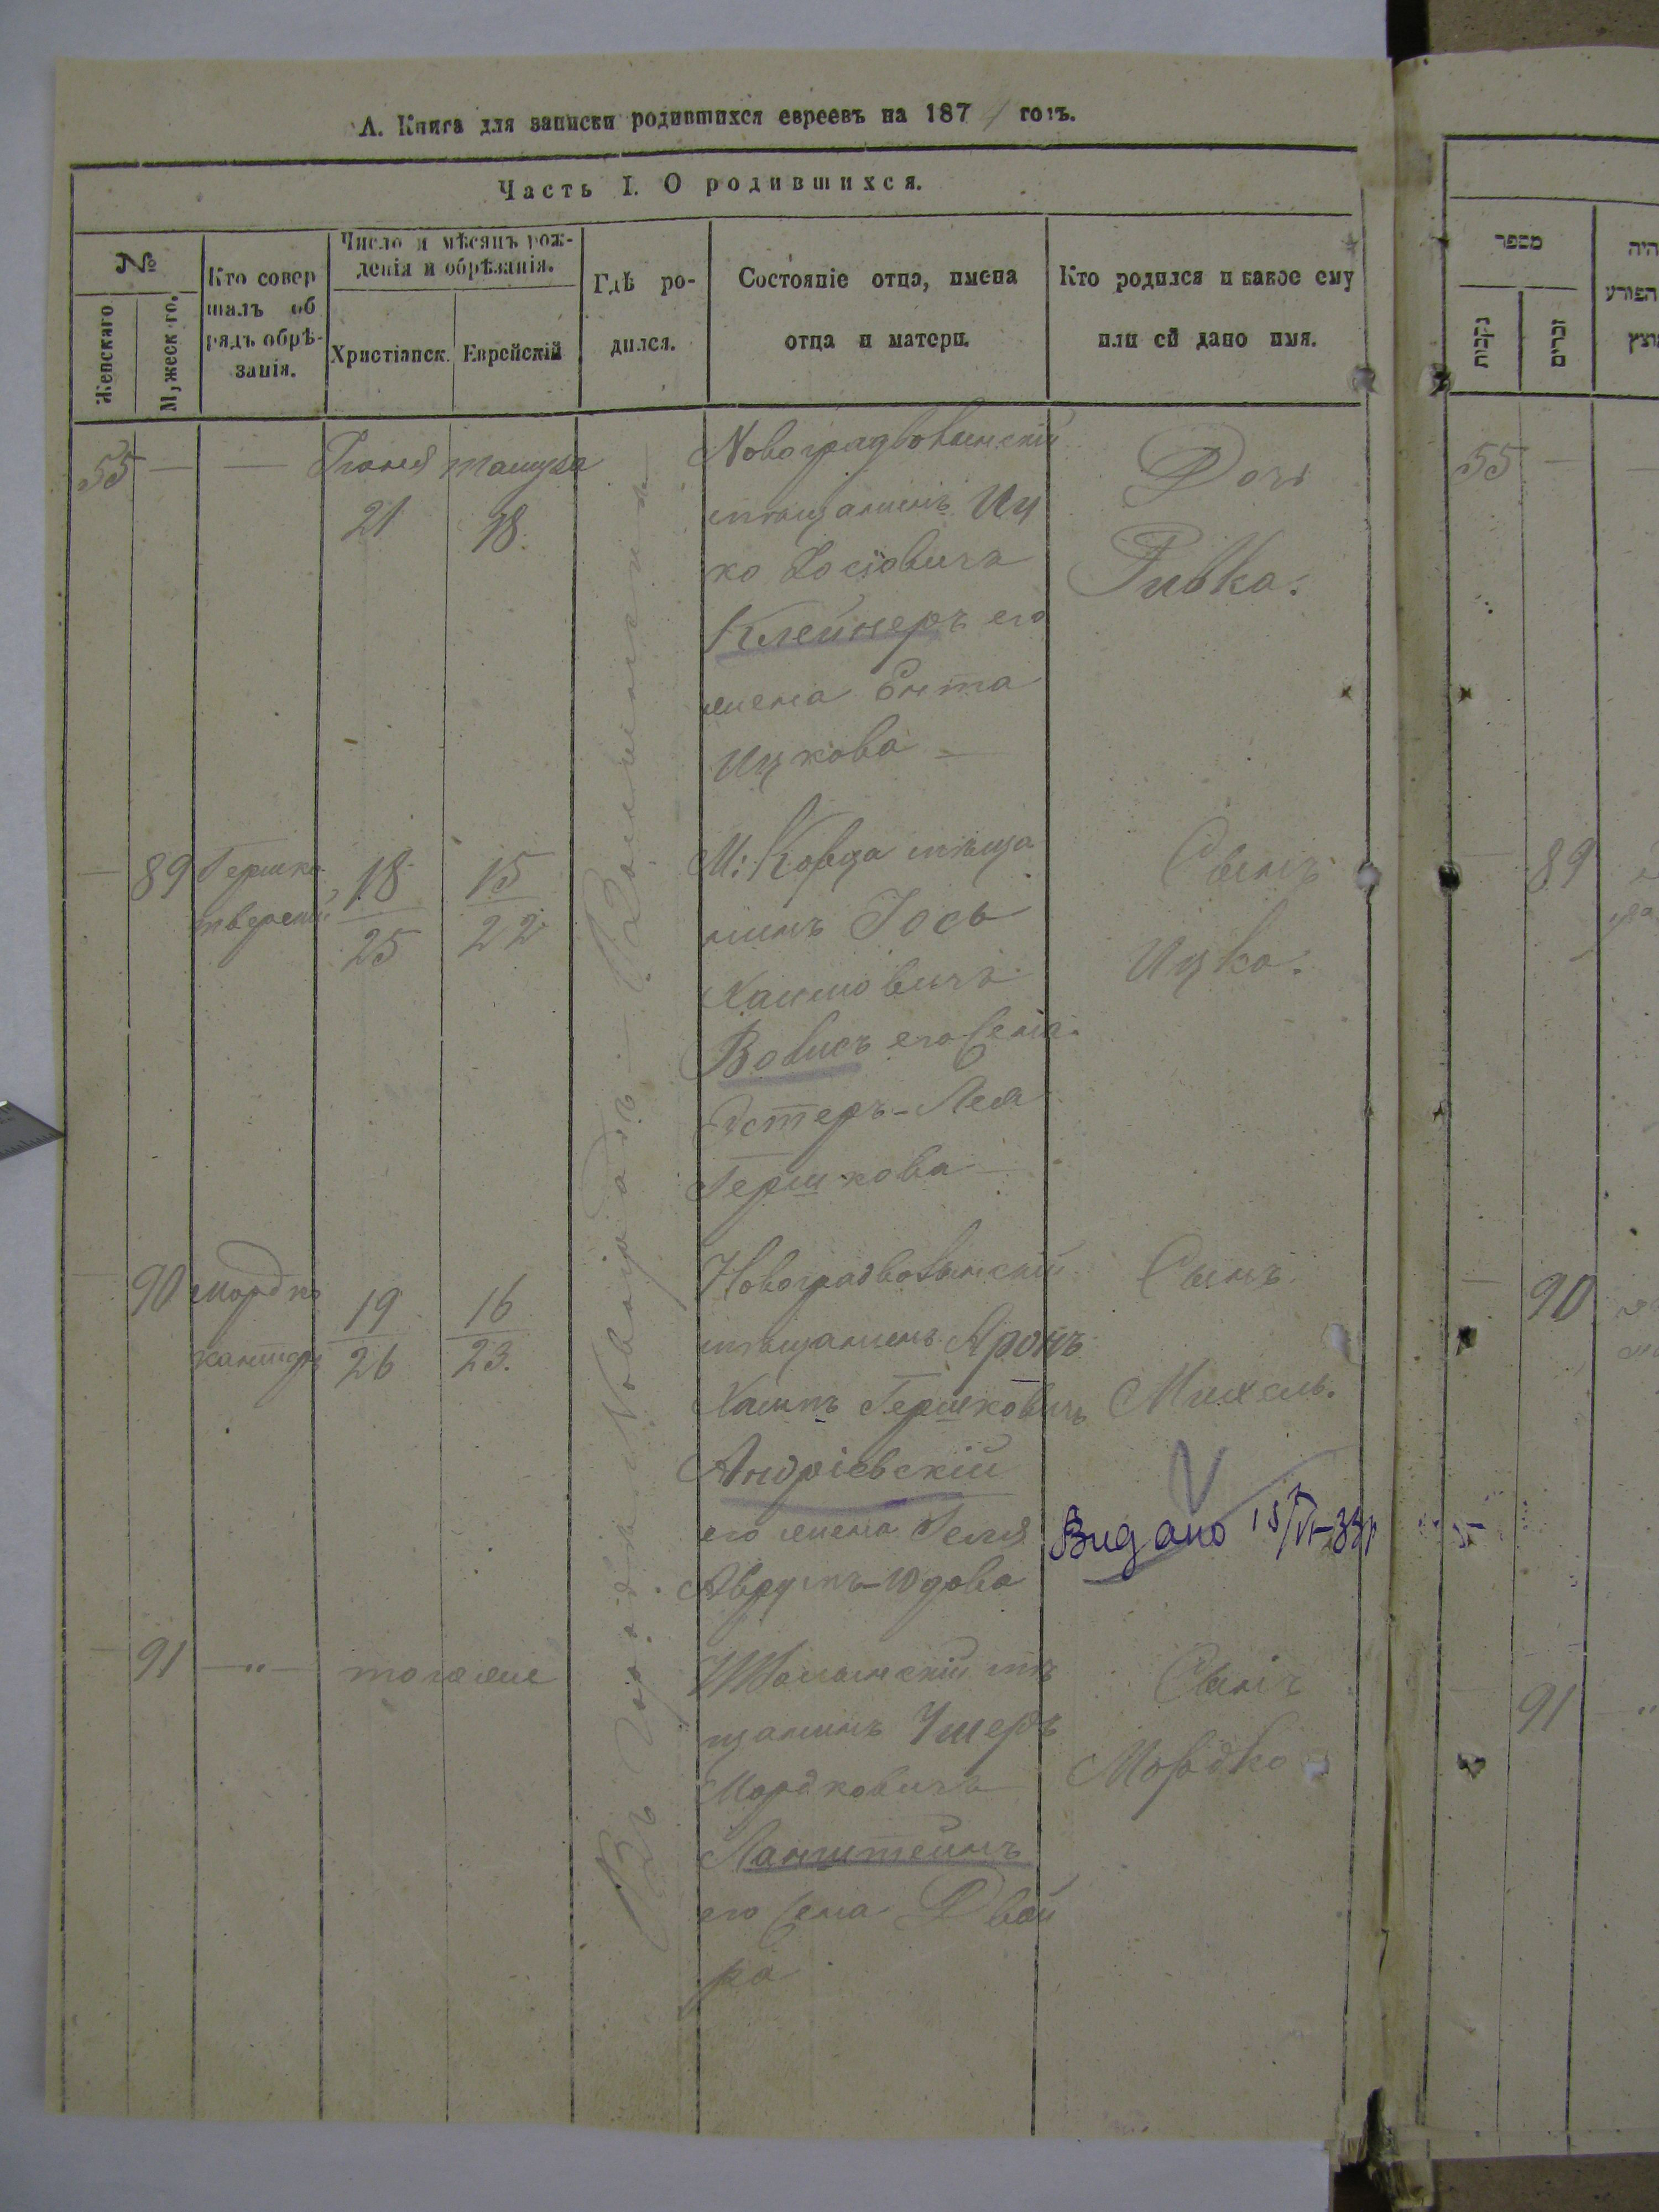 А. Книга для записки родившихся евреевъ на 187 годъ.
Часть I. О родившихся.
№
Женскаго
Мужеского.
Кто совер
шалъ об
рядъ обрѣ-
занія.
Число и мѣсяцъ рож-
денія и обрѣзанія.
Христіанск.
Еврейскій
Гдѣ ро-
дился.
Состояніе отца, имена
отца и матери.
Кто родился и какое ему
или ей дано имя.
55 — —
21 18.
Новоградволынскій
мѣщанинъ Иц
ко Іосіовичъ
Клейнеръ его
жена Ента
Ицкова
Дочь
Ривка.
Въ Городѣ Новоградъ-Волынскѣ
— 89 Гершко
18 15
25 22
М: Корца мѣща
нинъ Іось
Хаимовичъ
Вовисъ его жена
Эстеръ-Лея
Гершкова
Сынъ
Ицко.
90 Мордко
19 16
26 23.
Новоградволынскій
мѣщанинъ Аронъ
Хаимъ Гершковичъ
Андріевскій
его жена Геля
Аврумъ-Юдова
Сынъ
Михель.
Видано
91 — " — тогоже
мѣ
щанинъ Ушеръ
Мордковичъ
его жена Двой
ра
Сынъ
Мордко
מספר
נקבות
זכרים
היה
55 —
89
90
91